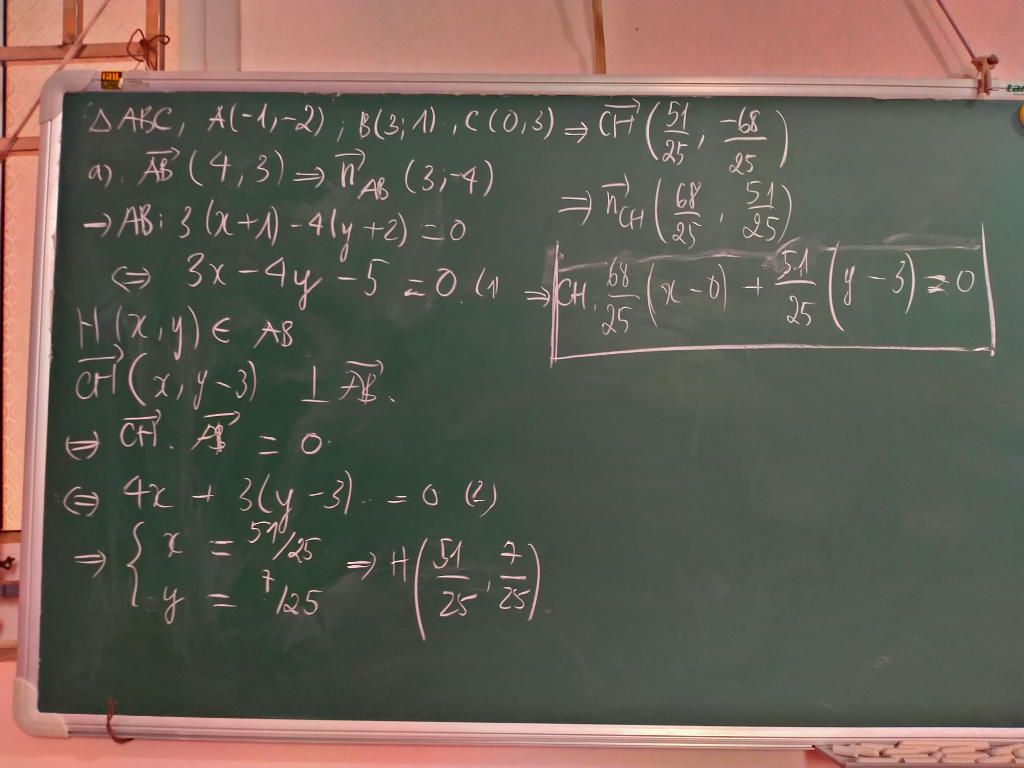 △ABC, A(-1,-2); B(3;1), C(0,3)
a). $\overrightarrow{AB}$ (4,3) ⇒ $\overrightarrow{n}_{AB}$ (3;-4)
→ AB: 3(x+1) -4(y+2) = 0
⇔ 3x - 4y - 5 = 0. (1
H(x,y) ∈ AB
$\overrightarrow{CH}$ (x, y-3) ⊥ $\overrightarrow{AB}$.
⇔ $\overrightarrow{CH}$. $\overrightarrow{AB}$ = 0
⇔ 4x + 3(y-3) = 0 (2)
⇒ { x = 51/25
y = 7/25 ⇒ H(51/25, 7/25)
⇒ $\overrightarrow{CH}$ (51/25, -68/25)
⇒ $\overrightarrow{n}_{CH}$ (68/25, 51/25)
⇒ CH: 68/25 (x-0) + 51/25 (y-3) = 0